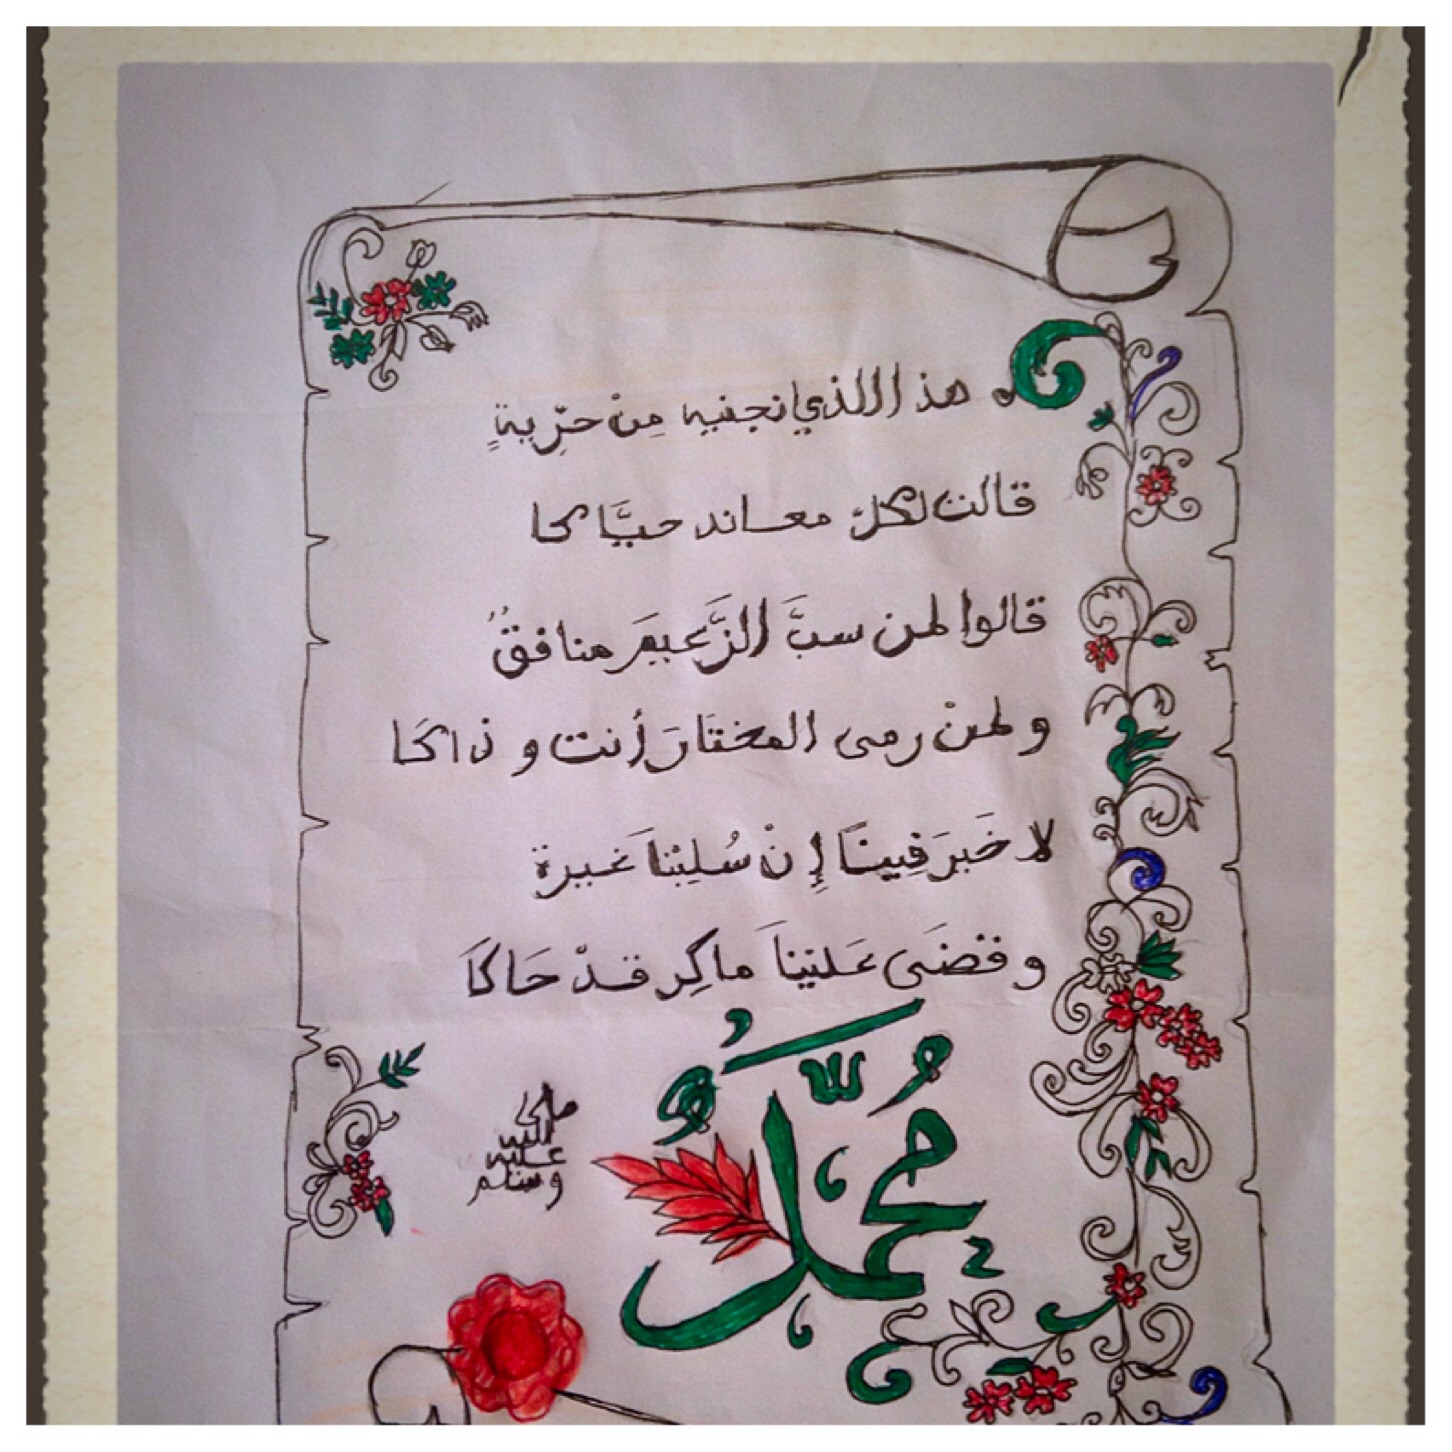 هذا الذي نجنيه مِنْ حرِّيةٍ
قالت لكلّ معاند حيَّاكا
قالوا لمن سبَّ الزَّعيمَ منافقُ
ولمنْ رمى المختَارَ أنت وذاكَا
لا خَيرَ فِينَا إِنْ سُلِبْنَا غيرة
وقضَى عَليْنَا ماكِر قدْ حَاكَا
مُحَمَّدٌ
صلى
الله
عليه
وسلم